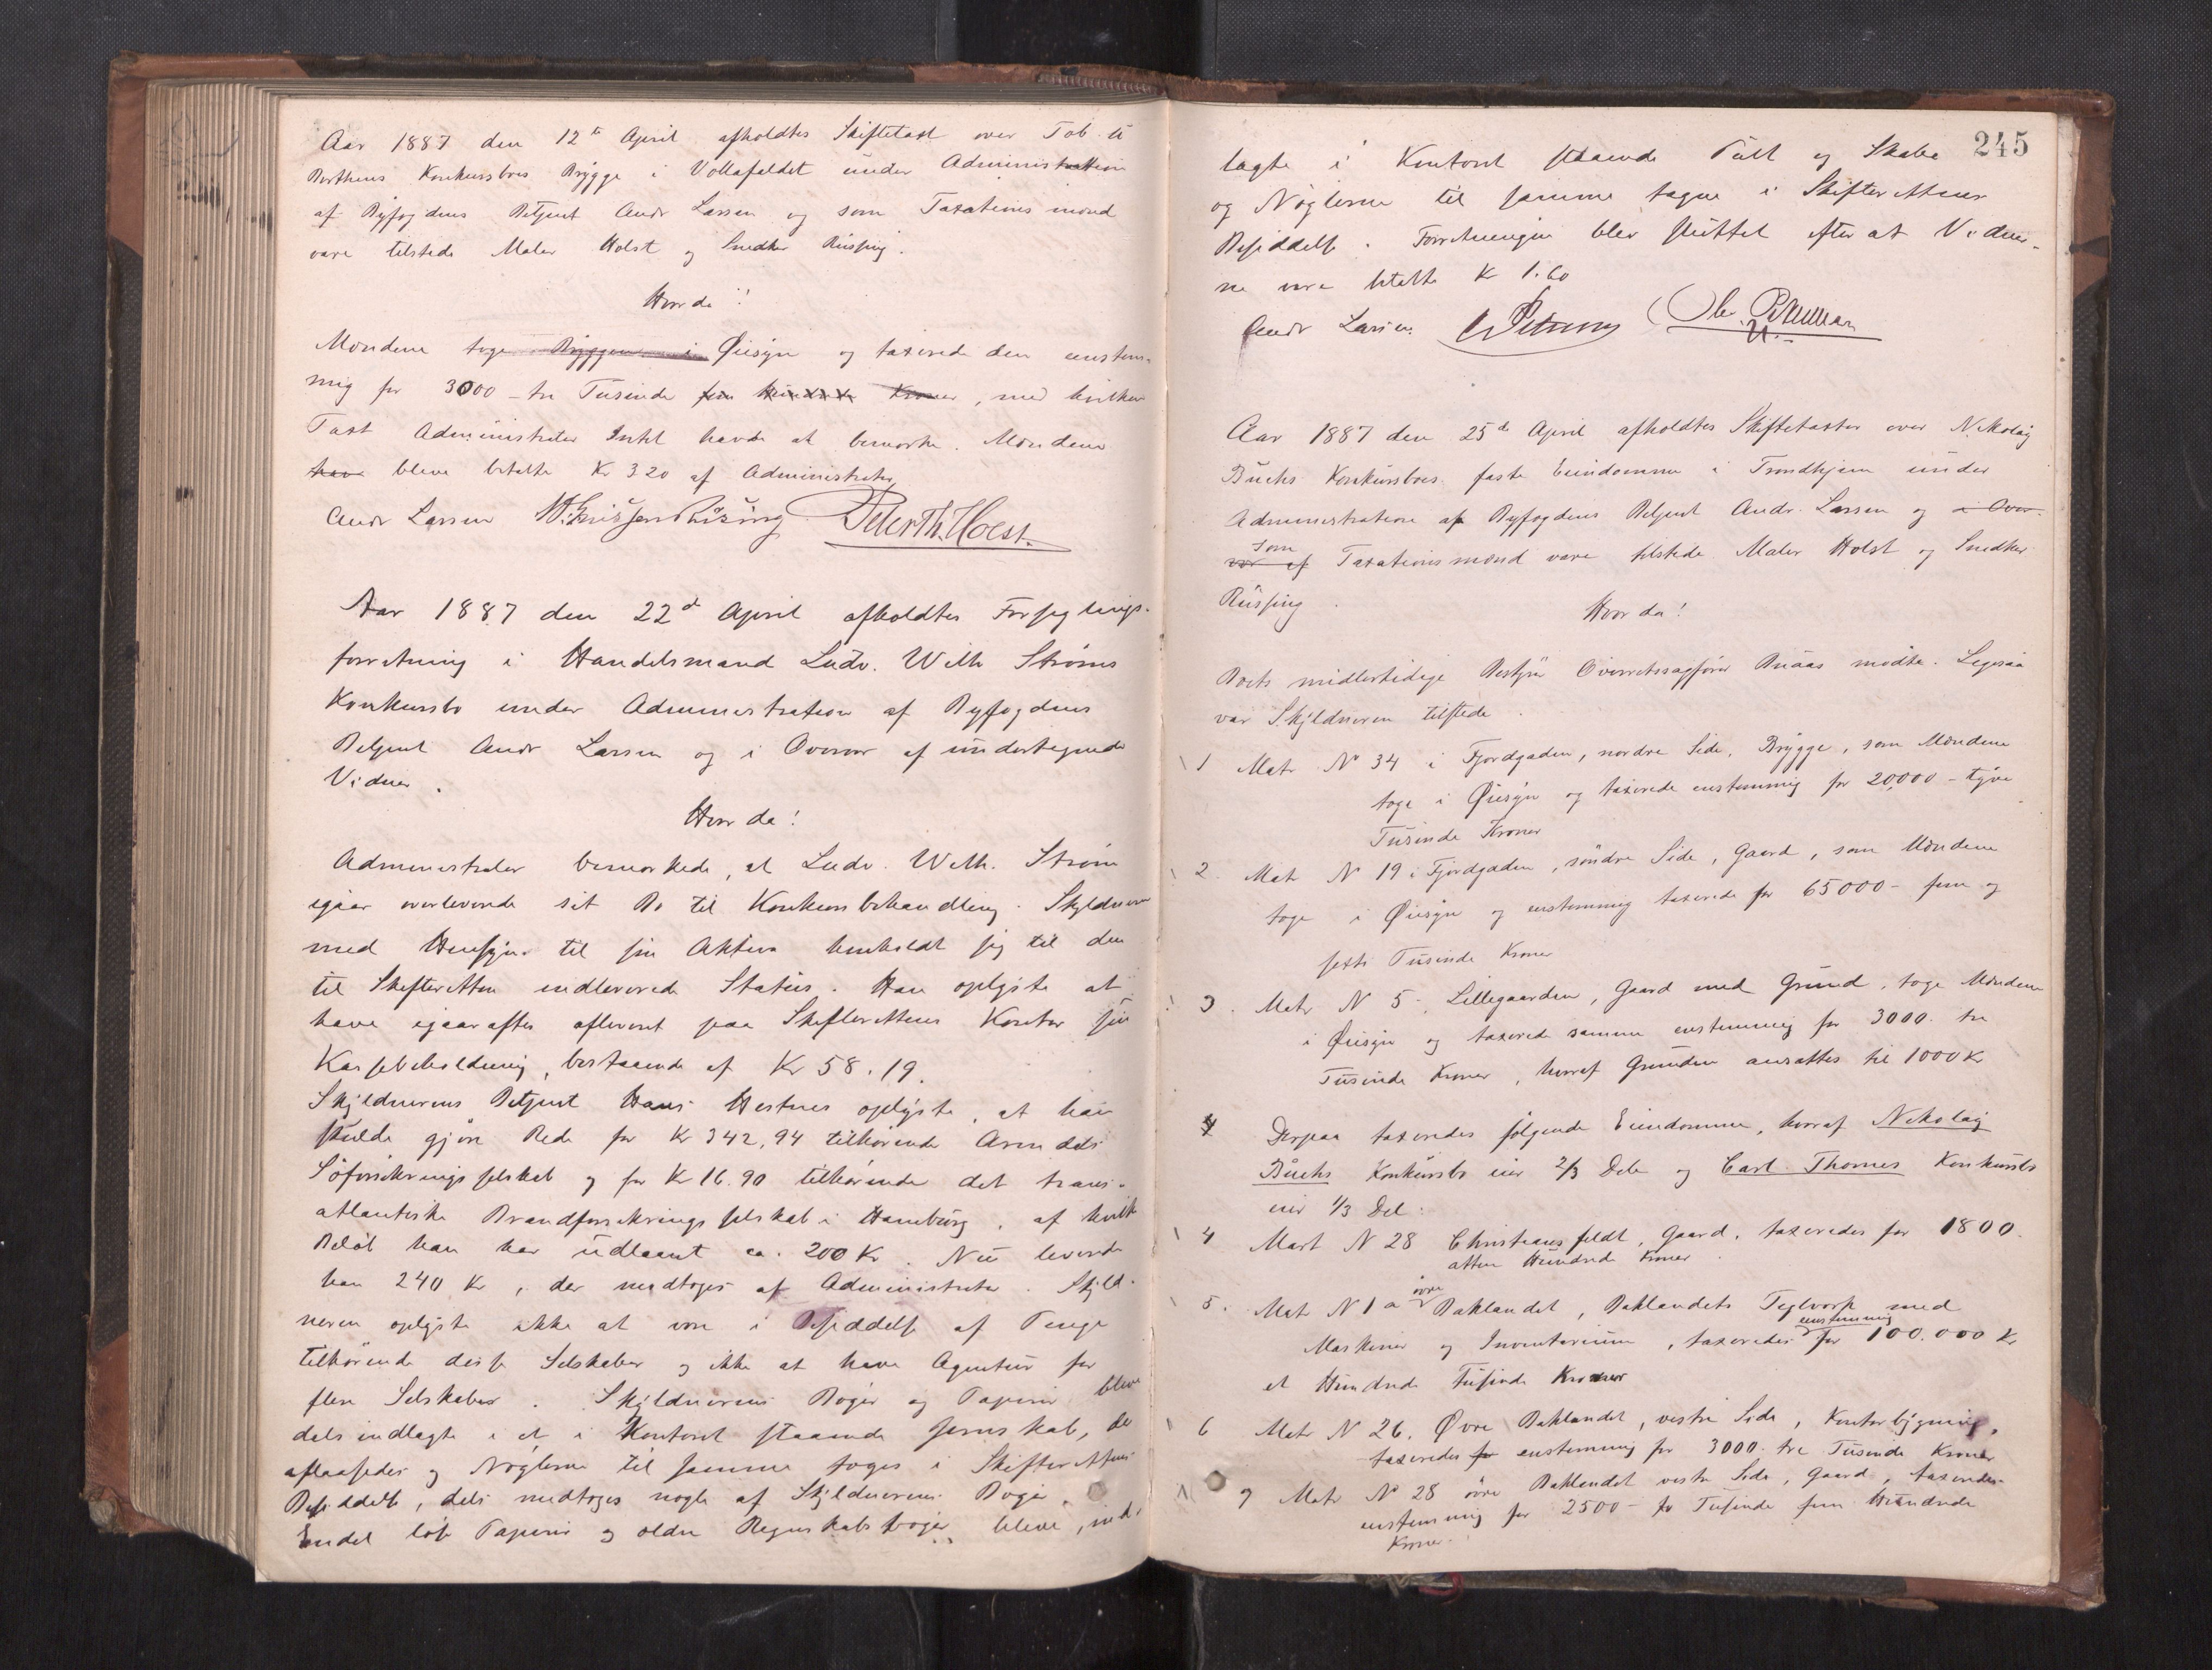 Aar 1887 den 12te April afholdtes Skiftetaxt over Tob. U
Berthens Konkursboes Brygge i Vollafaldet under Administration
af Byfogdens Betjent Andr Larsen og som Taxationsmænd
vare tilstede Maler Holst og Snedker Riising.
Hvor da!
Mændene toge Byggen i Øiesyn og taxerede den enstem-
mig for 3000 - tre Tusinde fem hundrede Kroner, med hvilken
Taxt Administrator Intet havde at bemærke. Mændene
have bleve betalte Kr 3.20 af Administrator
Andr Larsen Peter Th. Holst.
Aar 1887 den 22de April afholdtes Forseglings-
forretning i Handelsmand Ludv. Wilh Strøms
Konkursbo under Administration af Byfogdens
Betjent Andr Larsen og i Overvær af undertegnede
Vidner.
Hvor da!
Administrator bemærkede, at Ludv. Wilh. Strøm
igaar overleverede sit Bo til Konkursbehandling. Skyldneren
med Hensyn til sin Aktiva henholdt sig til den
til Skifteretten indleverede Status. Han oplyste at
have igaaraftes afleveret paa Skifterettens Kontor sin
Kassebeholdning, bestaaende af Kr 58.19.
Skyldnerens Betjent Hans Hestnes oplyste, at han
skulde gjøre Rede for Kr 342,94 tilhørende Arendals
Søforsikringsselskab og for Kr 16.90 tilhørende det trans-
atlantiske Brandforsikringsselskab i Hamburg, af hvilke
Beløb han har udlaant ca. 200 Kr. Nu leverede
han 240 Kr, der modtoges af Administrator. Skyld-
neren oplyste ikke at være i Besiddelse af Penge
tilhørende disse Selskaber og ikke at have Agentur for
flere Selskaber. Skyldnerens Bøger og Papirer bleve
dels indlagte i et i Kontoret staaende Jernskab, der
aflaasedes og Nøglerne til samme toges i Skifterettens
Besiddelse, dels modtoges nogle af Skyldnerens Bøger.
Endel løse Papirer og ældre Regnskabsbøger bleve, ind-
245
lagte i Kontoret staaende Pult og Skabe
og Nøglerne til samme tagne i Skifterettens
Besiddelse. Forretningen blev sluttet efter at Vidner-
ne vare betalte K 1.60
Andr Larsen
Aar 1887 den 25de April afholdtes Skiftetaxter over Nikolay
Buchs Konkursboes faste Eiendomme i Trondhjem under
Administration af Byfogdens Betjent Andr. Larsen og i Over-
som
vær af Taxationsmænd vare tilstede Maler Holst og Snedker
Riising.
Hvor da!
Boets midlertidige Bestyrer Overretssagfører Buaas mødte. Ligesaa
var Skyldneren tilstede.
1 Matr No 34 i Fjordgaden, nordre Side, Brygge, som Mændene
toge i Øiesyn og taxerede enstemmig for 20,000 - tyve
Tusinde Kroner
2. Matr N 19 i Fjordgaden, søndre Side, Gaard, som Mændene
toge i Øiesyn og enstemmig taxerede for 65000 - fem og
sexti Tusinde Kroner
3. Matr N 5. Lillegaarden, Gaard med Grund, toge Mændene
i Øiesyn og taxered samme enstemmig for 3000. tre
Tusinde Kroner, hvoraf Grunden ansattes til 1000 Kr
4 Derpaa taxeredes følgende Eiendomme, hvoraf Nikolay
Buchs Konkursbo eier 2/3 Dele og Carl Thornes Konkursbo
eier 1/3 Del:
4 Mart N 28 Christiansfeldt, Gaard, taxeredes for 1800.
atten Hundrede Kroner.
øvre
5. Matr N 1 a Baklandet, Baklandets Teglværk med
enstemmig
Maskiner og Inventarium, taxeredes for 100.000 Kr
et Hundrede Tusinde Kroner
6 Matr N 26. Øvre Baklandet, vestre Side, Kontorbygning,
taxeredes for enstemmig for 3000. tre Tusinde Kroner
7 Matr No 28 øvre Baklandet vestre Side, Gaard, taxeredes
enstemmig for 2500 - to Tusinde fem Hundrede
Kroner.